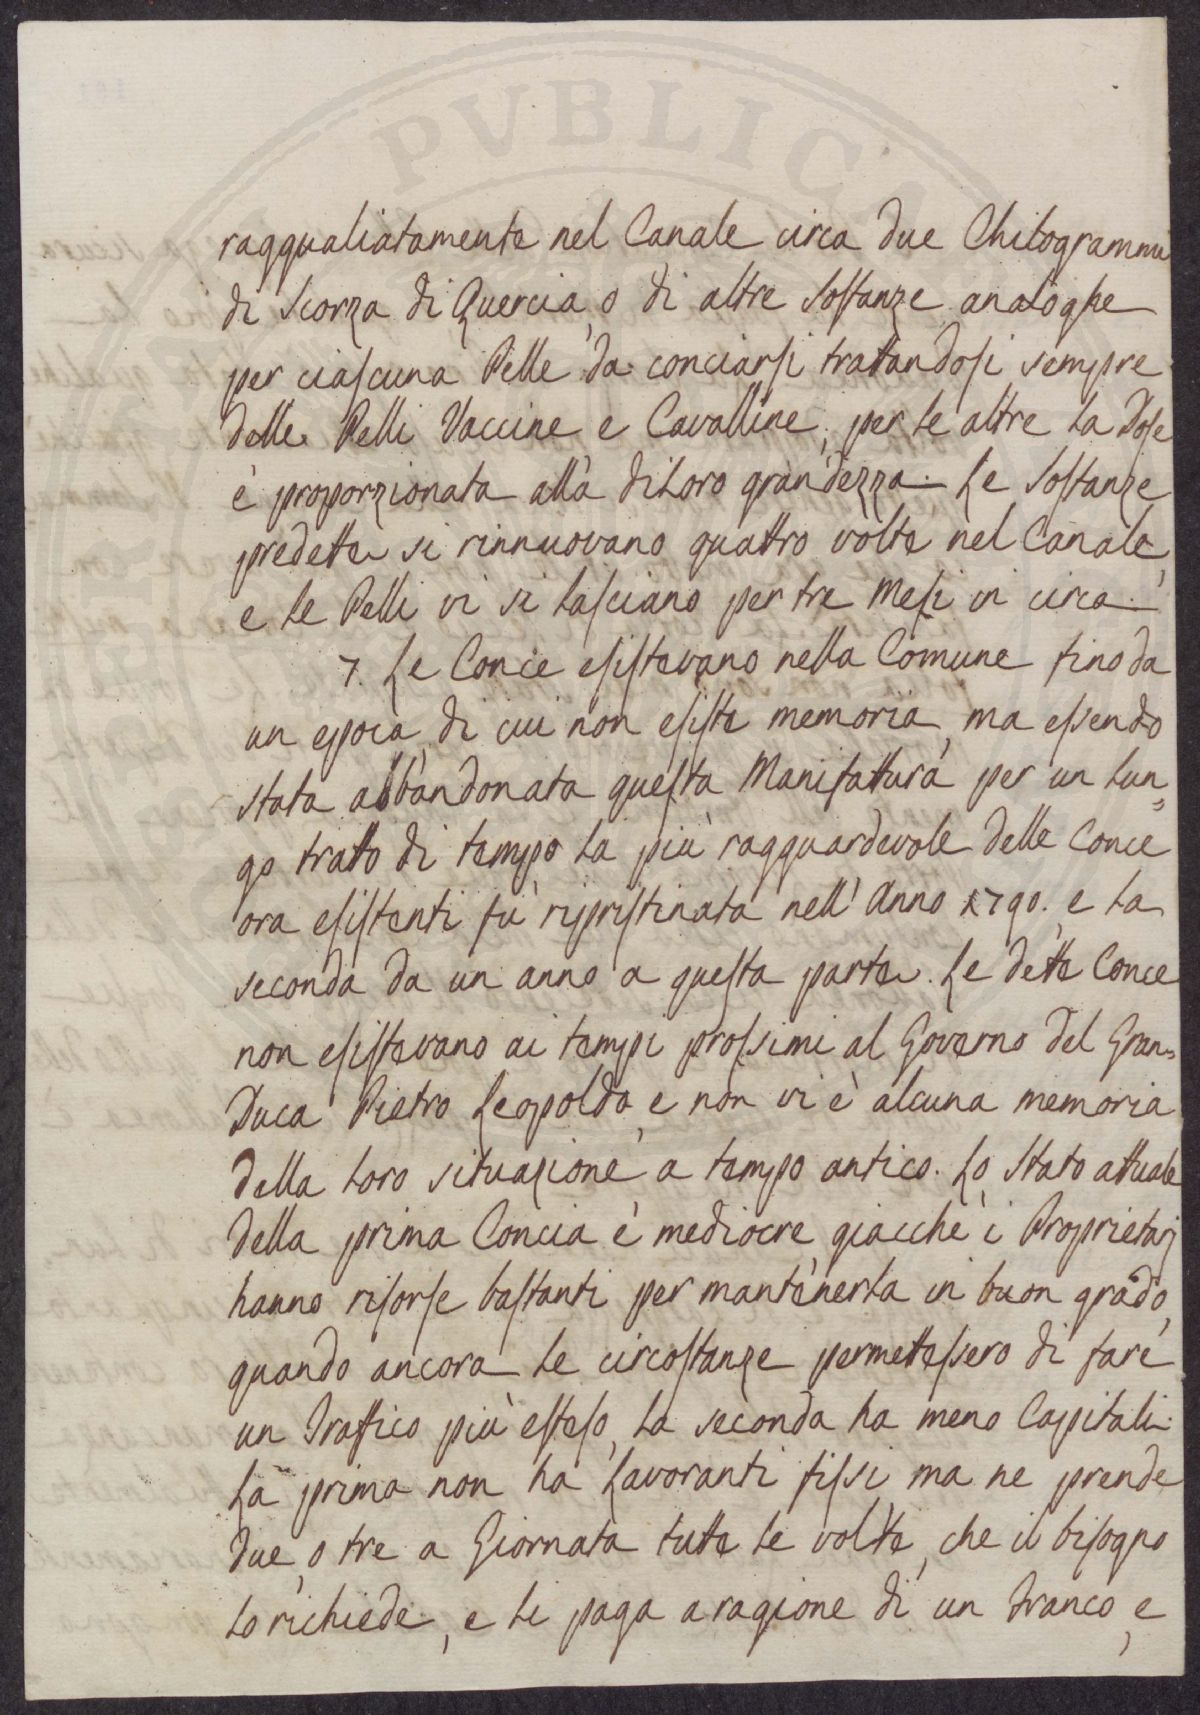 PVBLICA
raggualiatamente nel Canale circa due Chilogrammi
di Scorza di Quercia, o di altre Sostanze analoghe
per ciascuna Pelle da conciarsi trattandosi sempre
delle Pelli Vaccine e Cavalline; per le altre la Dose
è proporzionata alla di Loro grandezza. Le Sostanze
predette si rinnuovano quattro volte nel Canale,
e le Pelli vi si lasciano per tre Mesi in circa.
7. Le Concie esistevano nella Comune fino da
un epoca, di cui non esiste memoria, ma essendo
stata abbandonata questa Manifattura per un lun=
go tratto di tempo la più ragguardevole delle Conce
ora esistenti fù ripristinata nell' Anno 1790. e la
seconda da un anno a questa parte. Le dette Conce
non esistevano ai tempi prossimi al Governo del Gran=
Duca Pietro Leopoldo, e non vi è alcuna memoria
della loro situazione a tempo antico. Lo Stato attuale
della prima Concia è mediocre giacchè i Proprietarj
hanno risorse bastanti per mantenerla in buon grado,
quando ancora le circostanze permettessero di fare
un Traffico più esteso, la seconda ha meno Capitali.
La prima non ha Lavoranti fissi, ma ne prende
due, o tre a Giornata tutte le volte, che il bisogno
lo richiede, e li paga a ragione di un Franco, e